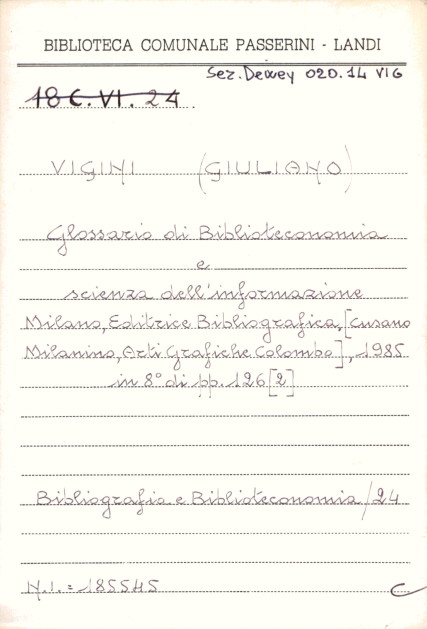 BIBLIOTECA COMUNALE PASSERINI - LANDI
Sez. Dewey 020.14 VIG
18 C. VI. 24
VIGINI (GIULIANO)
Glossario di Biblioteconomia
e
scienza dell'informazione
Milano, Editrice Bibliografica, [Cusano
Milanino, Arti Grafiche Colombo], 1985
in 8° di pp. 126 [2]
Bibliografia e Biblioteconomia / 24
N.I. = 185545
C